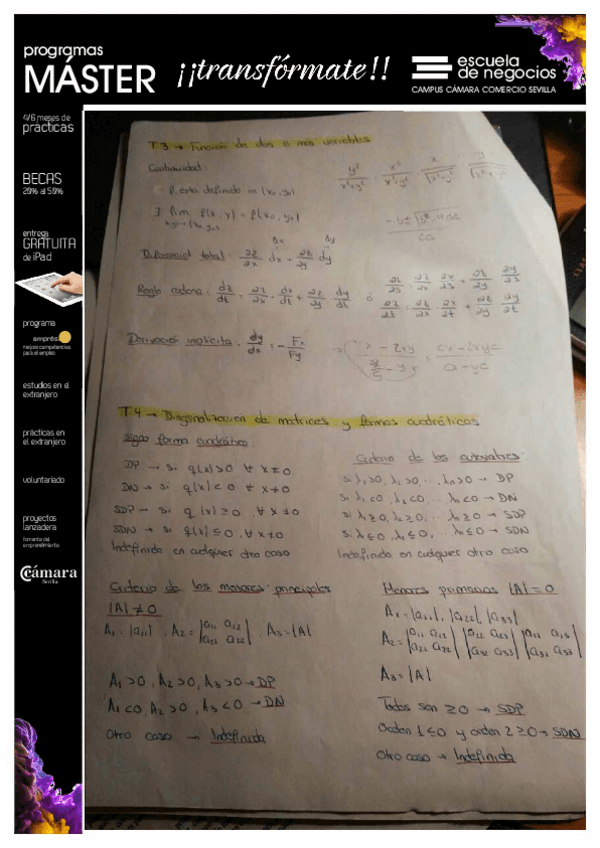 programas
MÁSTER
¡¡transfórmate!!
escuela
de negocios
CAMPUS CÁMARA COMERCIO SEVILLA
4/6 meses de
prácticas
BECAS
20% al 50%
entrega
GRATUITA
de iPad
programa
empresa
mejora competencias
para el empleo
estudios en el
extranjero
prácticas en
el extranjero
voluntariado
proyectos
lanzadera
fomento del
emprendimiento
Cámara
Sevilla
T3 → Función de dos o más variables
Continuidad:
f. esta definida en (x₀, y₀)
∃ lim f(x,y) = f(x₀, y₀)
y²/(x²+y²) x²/(x²+y²) x/√(x²+y²) y/√(x²+y²)
Diferencial total: ∂z/∂x dx + ∂z/∂y dy
Δx Δy
Regla cadena: dz/dt = ∂z/∂x · dx/dt + ∂z/∂y · dy/dt ó ∂z/∂s = ∂z/∂x · ∂x/∂s + ∂z/∂y · ∂y/∂s
∂z/∂t = ∂z/∂x · ∂x/∂t + ∂z/∂y · ∂y/∂t
Derivación implícita: dy/dx = - Fx/Fy
T4 → Diagonalización de matrices y formas cuadráticas
Signo forma cuadrática:
DP → si q(x) > 0 ∀ x ≠ 0
DN → si q(x) < 0 ∀ x ≠ 0
SDP → si q(x) ≥ 0, ∀ x ≠ 0
SDN → si q(x) ≤ 0, ∀ x ≠ 0
Indefinido en cualquier otro caso
Criterio de los autovalores:
si λ₁>0, λ₂>0, ..., λn>0 → DP
si λ₁<0, λ₂<0, ... λn<0 → DN
si λ₁≥0, λ₂≥0, ... λn≥0 → SDP
si λ₁≤0, λ₂≤0, ... λn≤0 → SDN
Indefinido en cualquier otro caso
Criterio de los menores principales
|A| ≠ 0
A₁ = |a₁₁|, A₂ = |a₁₁ a₁₂ / a₂₁ a₂₂|, A₃ = |A|
A₁ > 0, A₂ > 0, A₃ > 0 → DP
A₁ < 0, A₂ > 0, A₃ < 0 → DN
Otro caso → Indefinida
Menores primarios |A| = 0
A₁ = |a₁₁|, |a₂₂|, |a₃₃|
A₂ = |a₁₁ a₁₂ / a₂₁ a₂₂| |a₂₂ a₂₃ / a₃₂ a₃₃| |a₁₁ a₁₃ / a₃₁ a₃₃|
A₃ = |A|
Todos son ≥ 0 → SDP
Orden 1 ≤ 0 y orden 2 ≥ 0 → SDN
Otro caso → Indefinida